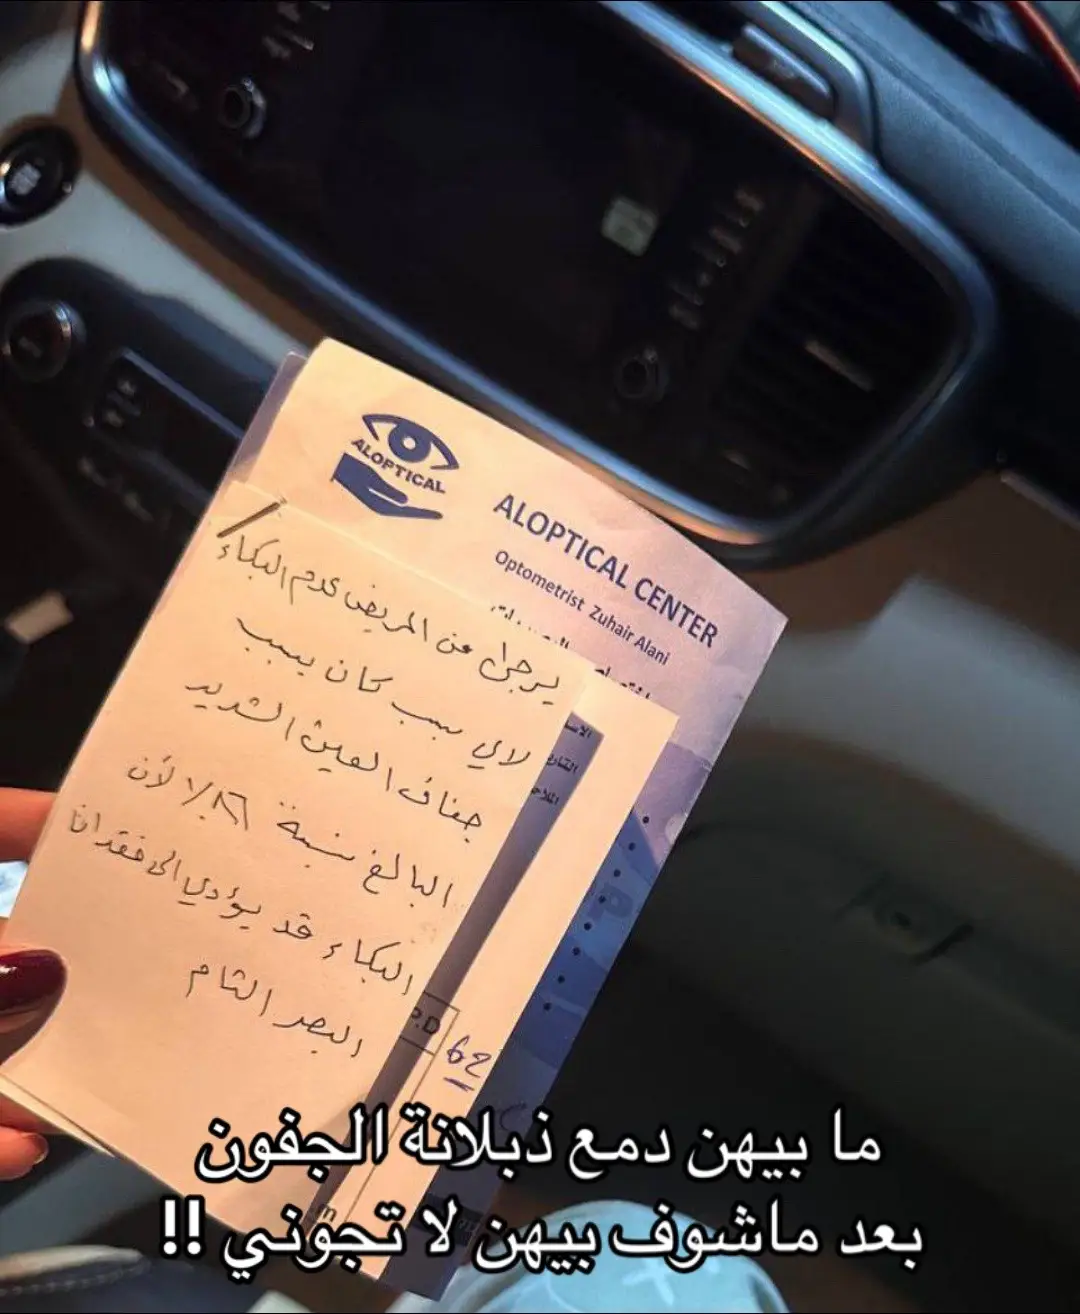 ALOPTICAL
ALOPTICAL CENTER
Optometrist Zuhair Alani
يرجى من المريض عدم البكاء
لاي سبب كان بسبب
جفاف العين الشديد
البالغ نسبة ٨٦٪ لأن
البكاء قد يؤدي الى فقدانا
البصر التام
التاريخ
P.D
62
ما بيهن دمع ذبلانة الجفون
بعد ماشوف بيهن لا تجوني !!